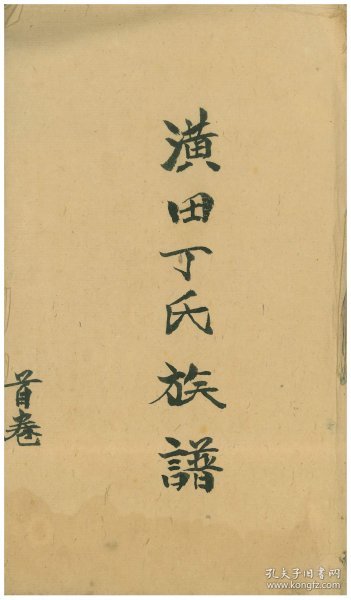 潢田丁氏族譜
首卷
孔夫子旧书网
www.kongfz.com